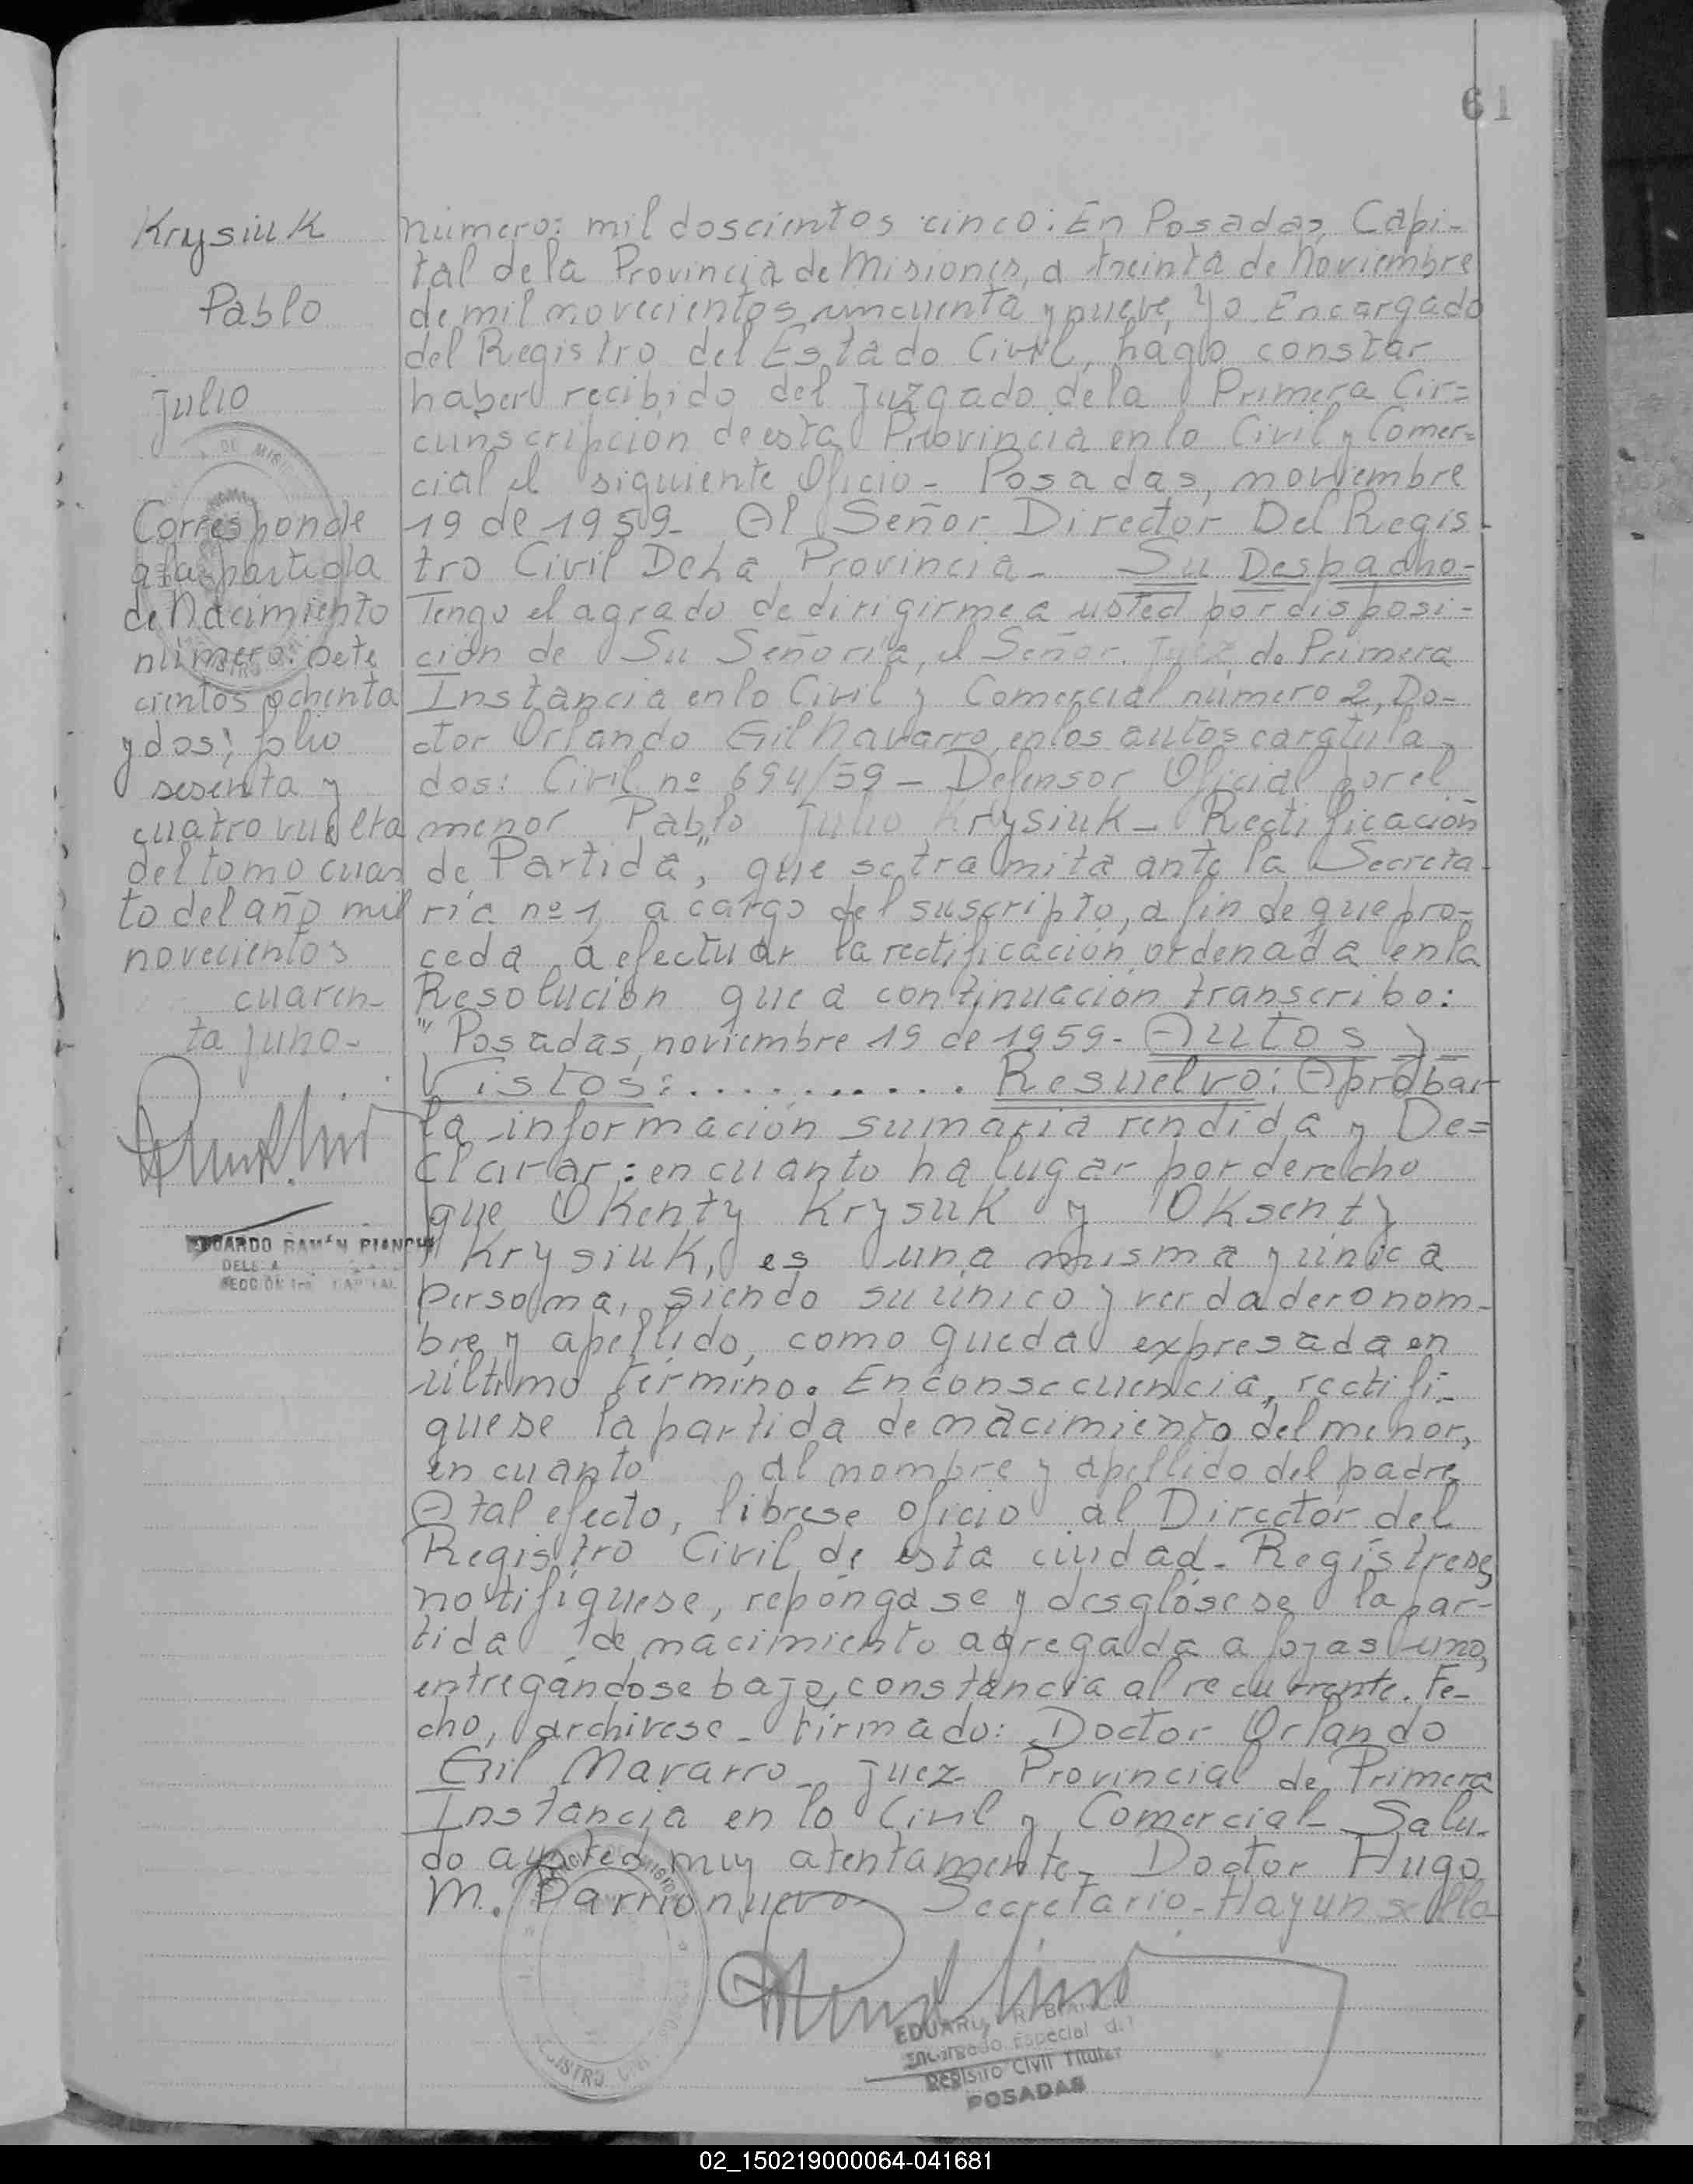 61
Krysiuk
Pablo
Julio
Corresponde
a la partida
de Nacimiento
número: sete
cientos ochenta
y dos; folio
sesenta y
cuatro vuelta
del tomo cuar
to del año mil
novecientos
cuaren-
ta y uno-
EDUARDO RAMÓN PIANCHI
número: mil doscientos cinco: En Posadas, Capi-
tal de la Provincia de Misiones, a treinta de Noviembre
de mil novecientos cincuenta y nueve, Yo Encargado
del Registro del Estado Civil, hago constar
haber recibido del Juzgado de la Primera Cir=
cunscripción de esta Provincia en lo Civil y Comer=
cial el siguiente Oficio- Posadas, noviembre
19 de 1959- Al Señor Director Del Regis-
tro Civil De La Provincia- Su Despacho-
Tengo el agrado de dirigirme a usted por disposi-
ción de Su Señoría, el Señor Juez de Primera
Instancia en lo Civil y Comercial número 2, Do-
ctor Orlando Gil Navarro, en los autos caratula-
dos: Civil nº 694/59- Defensor Oficial por el
menor Pablo Julio Krysiuk- Rectificación
de Partida", que se tramita ante la Secreta-
ría nº 1, a cargo del suscripto, a fin de que pro-
ceda a efectuar la rectificación ordenada en la
Resolución que a continuación transcribo:
"Posadas, noviembre 19 de 1959- Autos y
Vistos: .......... Resuelvo: Aprobar
la información sumaria rendida y De=
clarar: en cuanto ha lugar por derecho
que Okenty Krysuk y Oksenty
Krysiuk, es una misma y única
persona, siendo su único y verdadero nom-
bre y apellido, como queda expresada en
último término. En consecuencia, rectifí-
quese la partida de nacimiento del menor,
en cuanto al nombre y apellido del padre
A tal efecto, líbrese oficio al Director del
Registro Civil de esta ciudad. Regístrese,
notifíquese, repóngase y desglósese la par-
tida de nacimiento agregada a fojas uno,
entregándose bajo constancia al recurrente. Fe-
cho, archívese- Firmado: Doctor Orlando
Gil Navarro- Juez Provincial de Primera
Instancia en lo Civil y Comercial- Salu-
do a usted muy atentamente- Doctor Hugo
M. Barrionuevo- Secretario- Hay un sello
Encargado Especial del
Registro Civil Titular
POSADAS
02_150219000064-041681